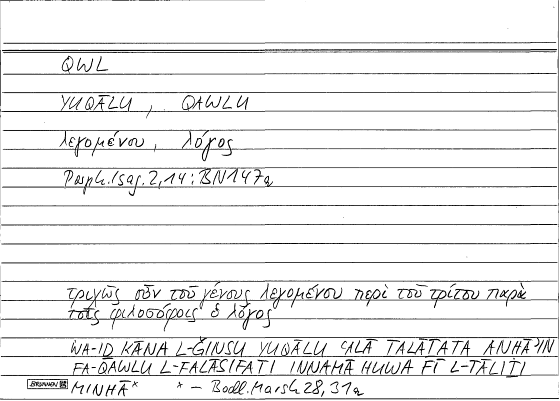 QWL
YUQĀLU, QAWLU
λεγομένου, λόγος
Porph. Isag. 2,14: BN147a
τριχῶς οὖν τοῦ γένους λεγομένου περὶ τοῦ τρίτου παρὰ
τοῖς φιλοσόφοις ὁ λόγος
WA-IḎ KĀNA L-ǦINSU YUQĀLU ʿALĀ ṮALĀṮATA ANḤĀʾIN
FA-QAWLU L-FALĀSIFATI INNAMĀ HUWA FĪ L-ṮĀLIṮI
MINHĀ* * – Bodl. Marsh 28, 31a
BRUNNEN